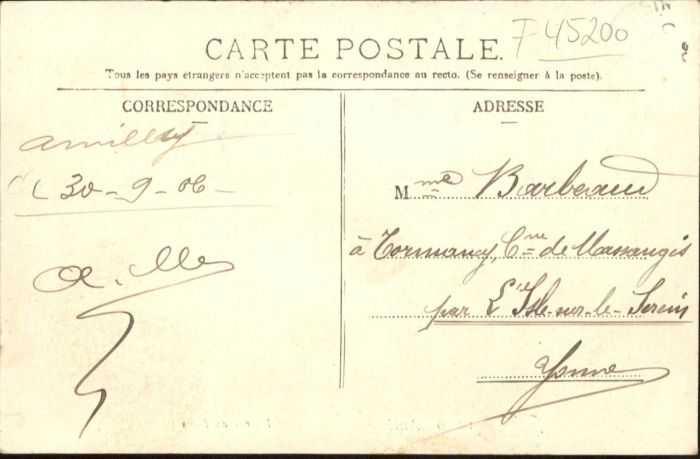 F 45200
CARTE POSTALE.
Tous les pays étrangers n'acceptent pas la correspondance au recto. (Se renseigner à la poste).
CORRESPONDANCE
Amilly
30-9-06-
ADRESSE
Mme Barbeaud
à Tormancy, Cne de Massangis
par L'Isle-sur-le-Serein
Yonne